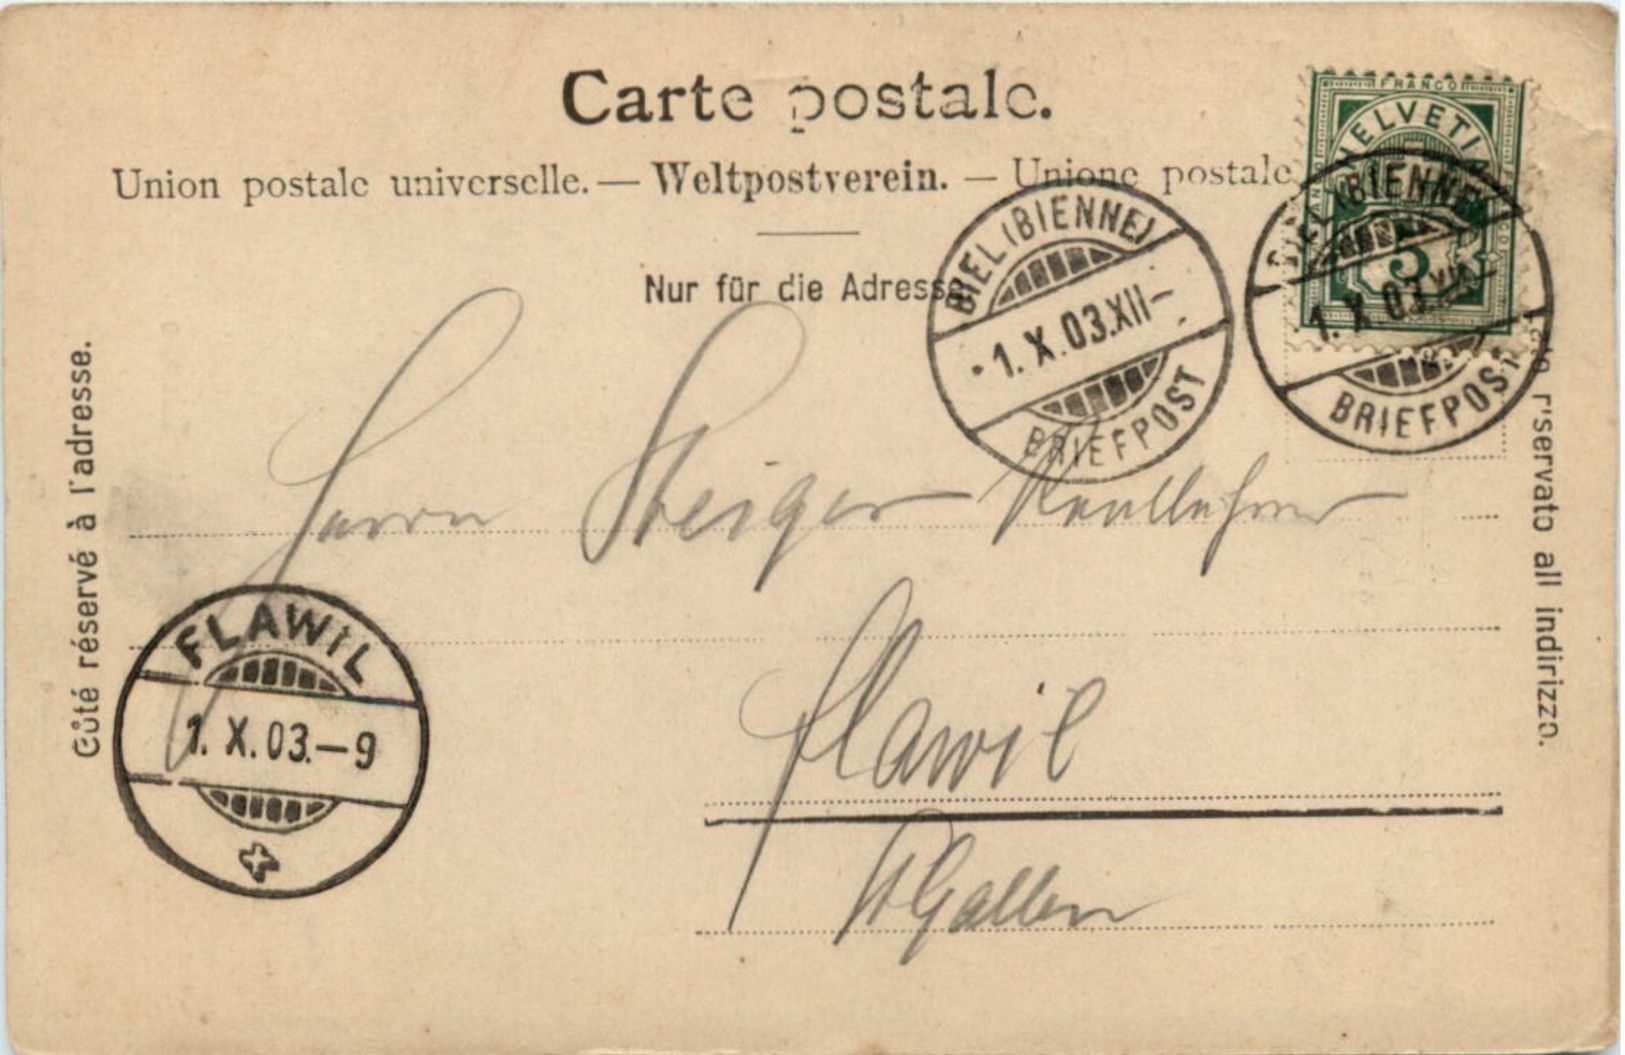 Carte postale.
Union postale universelle. — Weltpostverein. — Unione postale
Nur für die Adresse
Côté réservé à l'adresse.
r'servato all indirizzo.
FRANCO
HELVETIA
5
BIEL (BIENNE)
1. X. 03. XII –
BRIEFPOST
BIEL (BIENNE)
1. X. 03. XII
BRIEFPOST
Herrn Steiger Reallehrer
Flawil
St Gallen
FLAWIL
1. X. 03. – 9